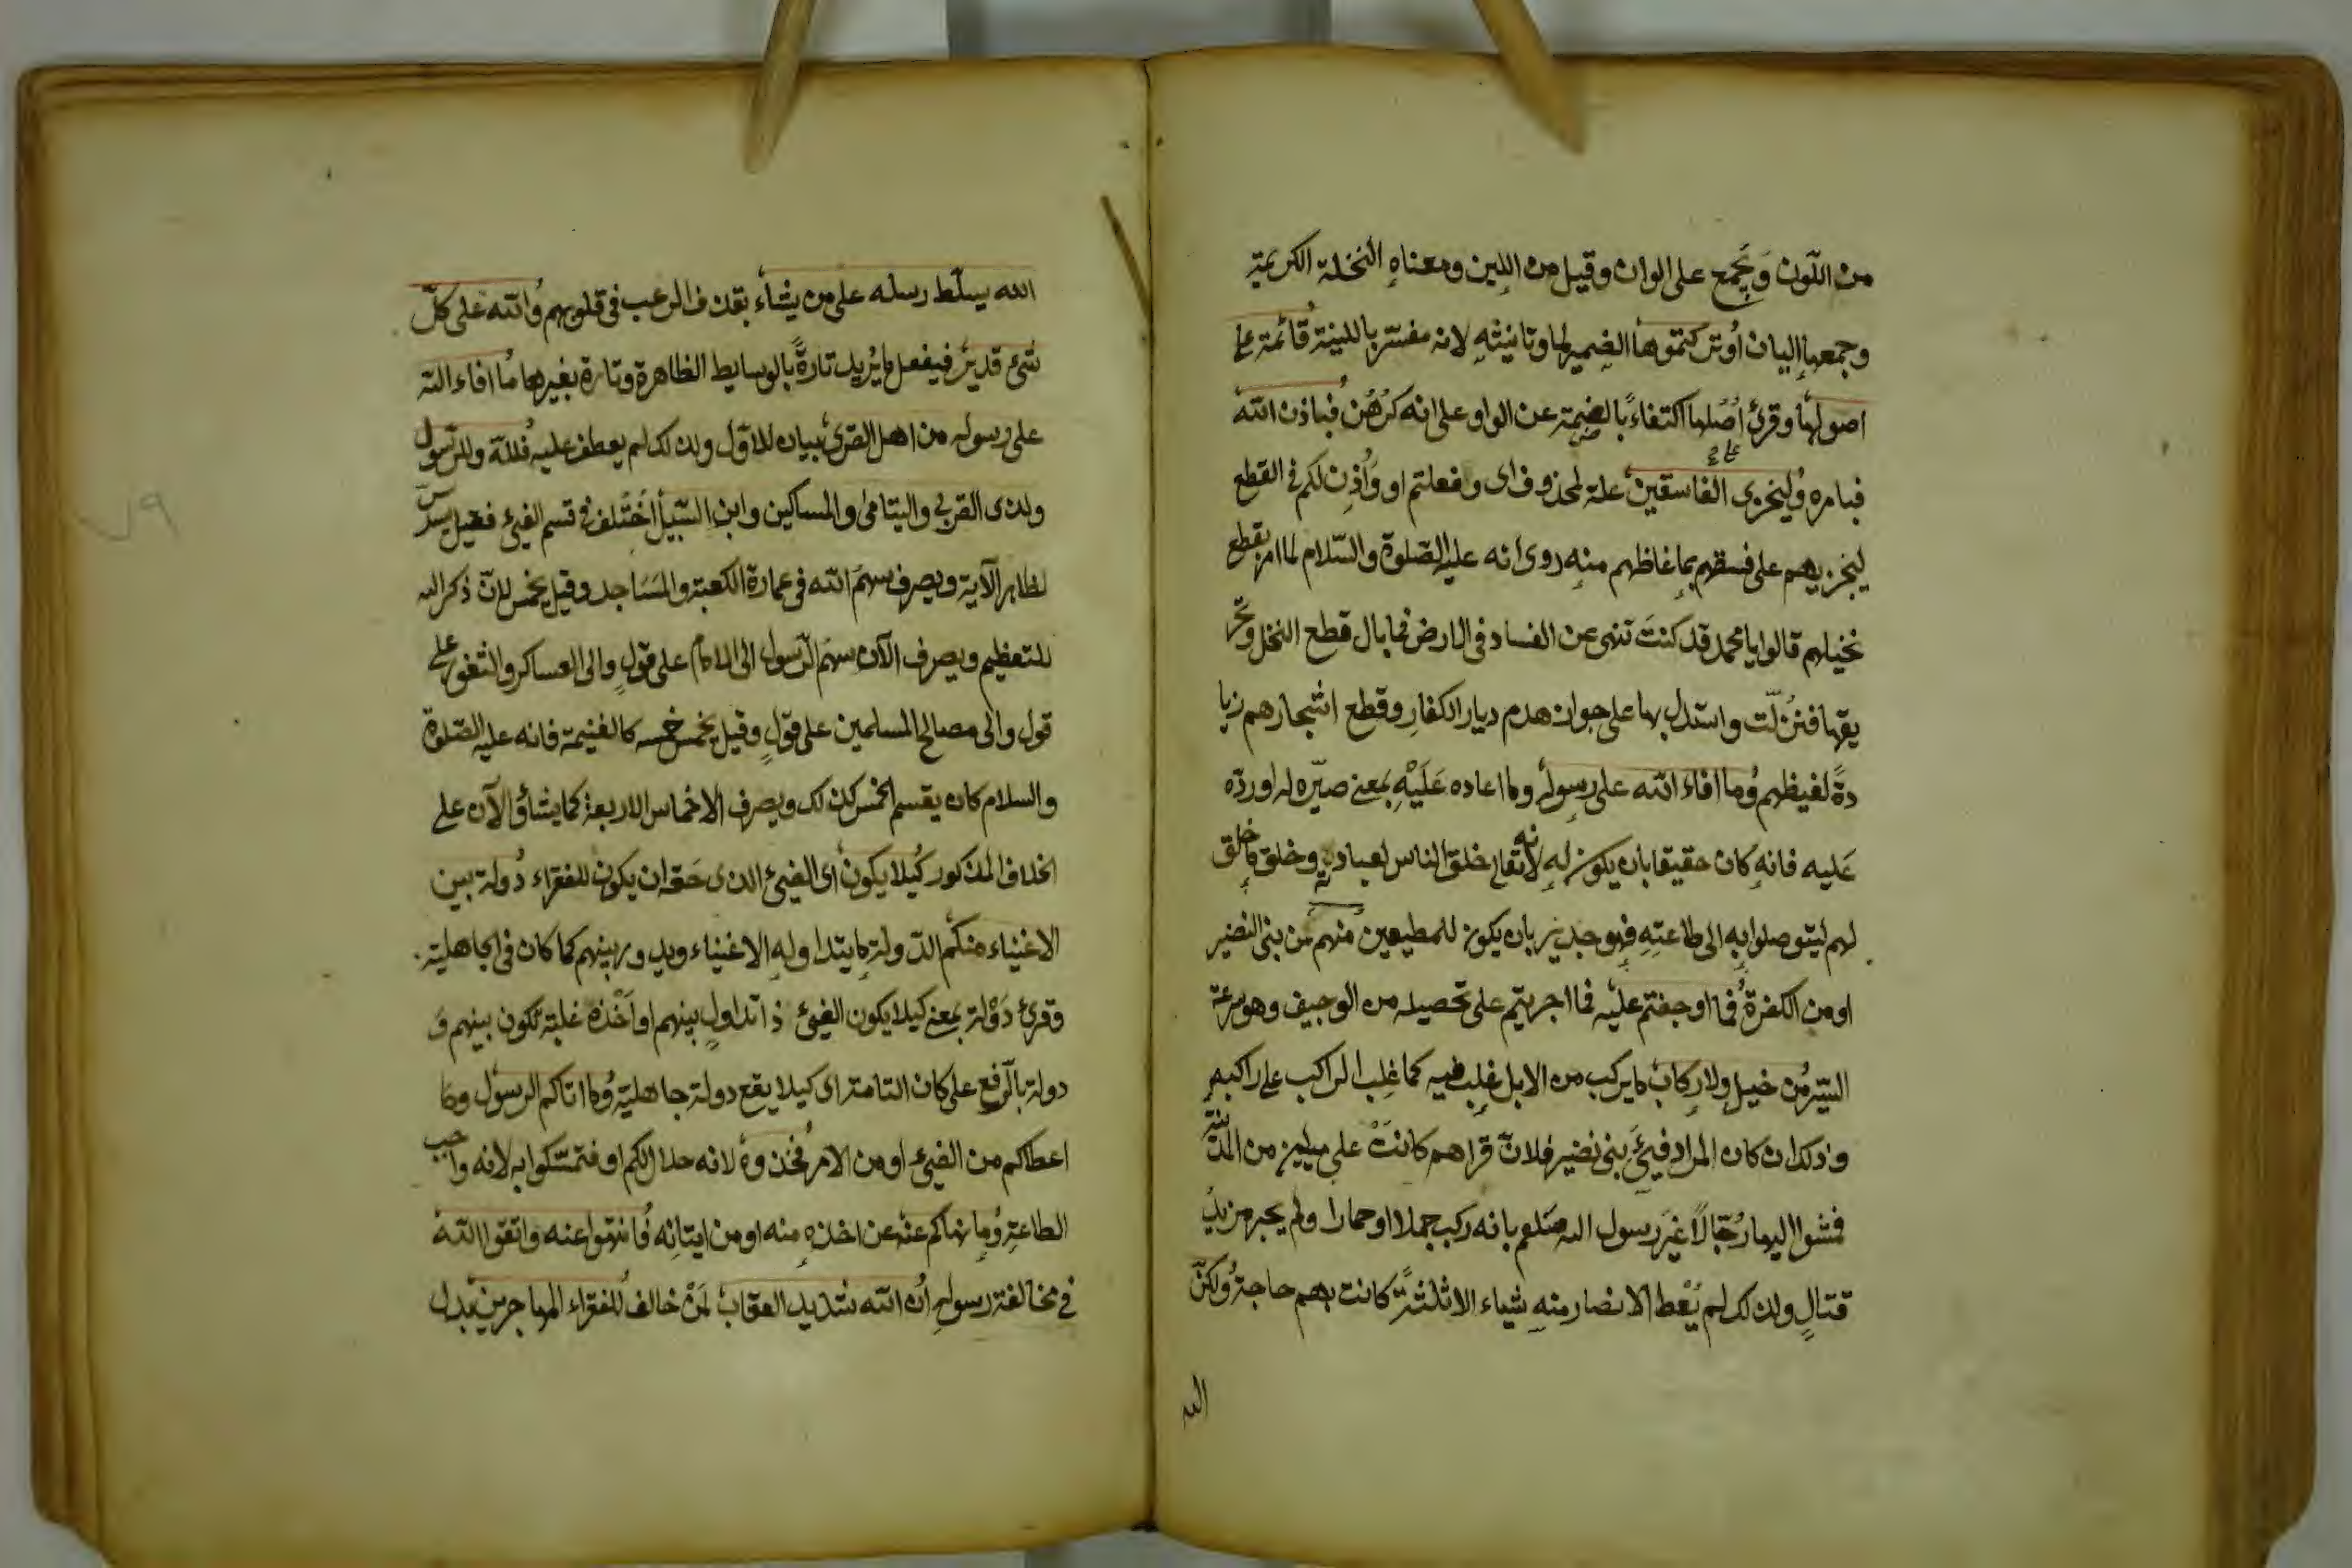 من اللّون وَيُجمع على الوان وقيل من اللِين ومعناهِ النخلة الكريمة
وجمعها اليان اوتركتموها الضمير لما وتانيثهِ لانه مفسّر باللينة قائمة على
اصولها وقرئ اُصُلها اكتفاءً بالضمة عن الواو على انه كرُهُن فباذن الله
فبامره وليخزى الفاسقين علة لمحذوف اى وفعلتم او وَاُذِن لكم فى القطع
ليخزيهم على فسقهم بما غاظهم منه روى انه عليه الصّلوة والسّلام لما امر بقطع
نخيلهم قالوا يا محمد قد كنتَ تنهى عن الفساد فى الارض فما بال قطع النخل وتحر
يقها فنزلت واستدل بها على جواز هدم ديار الكفارِ وقطع اشجارهم زيا
دةً لغيظهم وما افاء الله على رسوله وما اعاده عَلَيْهِ بمعنى صيّره له او ردّه
عَليه فانهِ كان حقيقا بان يكون له لانه تعالى خلق الناس لعبادته وخلق ما خلق
لهم ليتوصلوا بهِ الى طاعتهِ فهو جدير بان يكون للمطيعين منهم من بنى النضير
او من الكفرة فما اوجفتم عليه فما اجريتم على تحصيله من الوجيف وهو سرعة
السّير من خيل ولا ركاب ما يركب من الابل غلب فيه كما غلِب الراكب على راكبه
وذلك ان كان المراد فيئَ بنى نضير فلانّ قراهم كانتْ على ميلين من المدينة
فمشوا اليها رُجّالاً غيَر رسول الله صلعم بانه ركب جملا او حمارا ولم يجر مزيدُ
قتالٍ ولذلك لم يُعْط الانصار منهِ شياء الا ثلثةً كانت بهم حاجة ولكنّ
الله
الله يسلّط رسله على من يشاء بقذف الرعب فى قلوبهم والله على كلّ
شئ قدير فيفعل ما يُريد تارةً بالوسايط الظاهرة وتارة بغيرها ما افاء الله
على رسوله من اهل القرى بيان للاوّل ولذلك لم يعطف عليه فللّه وللرّسول
ولذى القربى واليتامى والمساكين وابن السّبيل اختُلف فى قسم الفئ فقيل يسدّس
لظاهر الآية ويصرف سهمُ الله فى عمارة الكعبة والمسَاجد وقيل يخمّس لانّ ذكر الله
للتعظيم ويصرف الآن سهمُ الرّسول الى الامام على قولٍ والى العساكر والثغور على
قول والى مصالح المسلمين على قولٍ وقيل يخمس خمسه كالغنيمة فانه عليه الصّلوة
والسلام كان يقسم الخمس كذلك ويصرف الاخماس الاربعة كما يشاؤ الآن على
الخلاف المذكور كيلا يكون اى الفئ الذى حَقه ان يكون للفقراء دُولة بين
الاغنياء منكم الدّولة ما يتداوله الاغنياء ويدور بينهم كما كان فى الجاهلية
وقرئ دَوْلة بمعنى كيلا يكون الفئ ذا تداولٍ بينهم او اَخْذه غلبة تكون بينهم وَ
دولة بالرّفع على كان التامة اى كيلا يقع دولة جاهلية وما اتاكم الرسول وما
اعطاكم من الفئ او من الامر فخذوه لانه حلال لكم او فتمسّكوا به لانه واجب
الطاعةِ وما نهاكم عنه عن اخذه منه او من ايتانِه فانتهوا عنه واتقوا الله
فى مخالفة رسولهِ ان الله شديد العقاب لمَنْ خالف للفقراء المهاجرين بدل